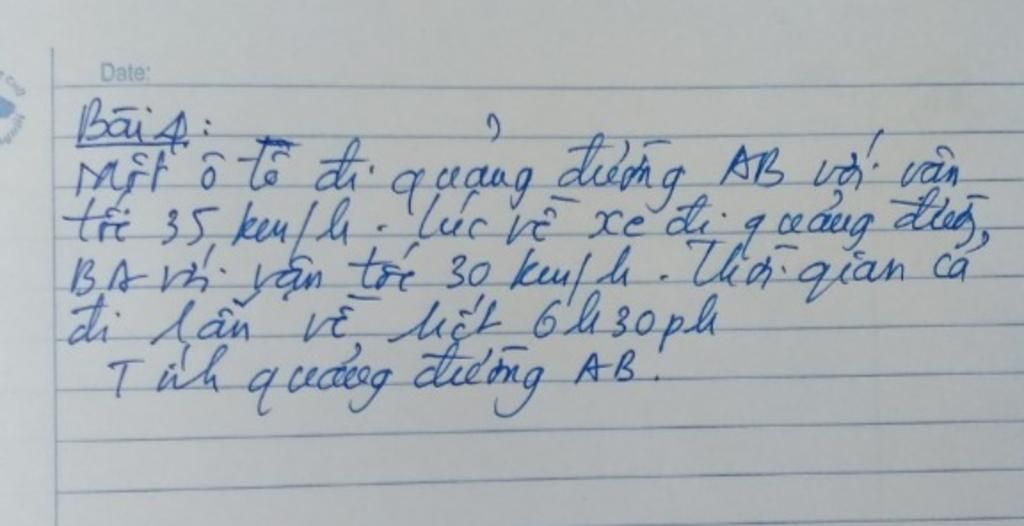 Date:
Bài 4:
Một ô tô đi quảng đường AB với vân
tốc 35 km/h. lúc về xe đi quảng đường
BA với vận tốc 30 km/h. Thời gian cả
đi lẫn về hết 6h30ph
Tính quảng đường AB.